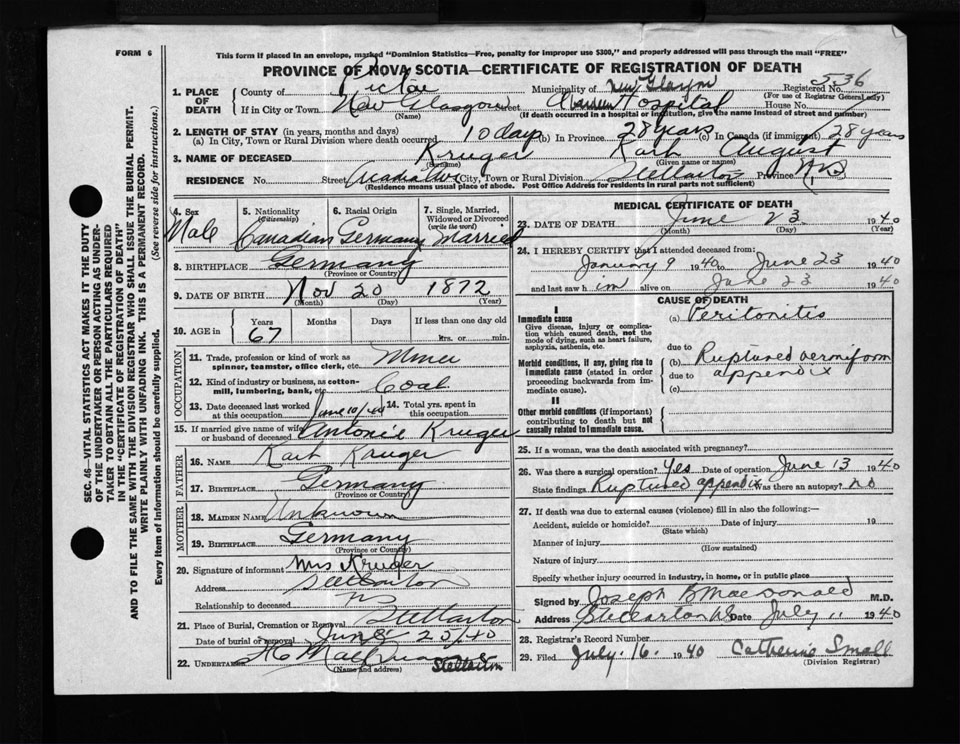 FORM 6
This form if placed in an envelope, marked "Dominion Statistics—Free, penalty for improper use $300," and properly addressed will pass through the mail "FREE"
PROVINCE OF NOVA SCOTIA—CERTIFICATE OF REGISTRATION OF DEATH
SEC. 46—VITAL STATISTICS ACT MAKES IT THE DUTY
OF THE UNDERTAKER OR PERSON ACTING AS UNDER-
TAKER TO OBTAIN ALL THE PARTICULARS REQUIRED
IN THE "CERTIFICATE OF REGISTRATION OF DEATH"
AND TO FILE THE SAME WITH THE DIVISION REGISTRAR WHO SHALL ISSUE THE BURIAL PERMIT.
WRITE PLAINLY WITH UNFADING INK. THIS IS A PERMANENT RECORD.
Every item of information should be carefully supplied. (See reverse side for instructions.)
1. PLACE OF DEATH
County of Pictou Municipality of New Glasgow Registered No. 536
(For use of Registrar General only)
If in City or Town New Glasgow Street Aberdeen Hospital House No.
(Name) (If death occurred in a hospital or institution, give the name instead of street and number)
2. LENGTH OF STAY (in years, months and days)
(a) In City, Town or Rural Division where death occurred 10 days (b) In Province 28 years (c) In Canada (if immigrant) 28 years
3. NAME OF DECEASED Kruger Karl August
(Surname) (Given name or names)
RESIDENCE No. Street Acadia Ave City, Town or Rural Division Stellarton Province N.S.
(Residence means usual place of abode. Post Office Address for residents in rural parts not sufficient)
4. Sex Male
5. Nationality (Citizenship) Canadian
6. Racial Origin Germany
7. Single, Married, Widowed or Divorced (write the word) Married
8. BIRTHPLACE Germany
(Province or Country)
9. DATE OF BIRTH Nov 20 1872
(Month) (Day) (Year)
10. AGE in Years 67 Months Days If less than one day old hrs. or min.
OCCUPATION
11. Trade, profession or kind of work as spinner, teamster, office clerk, etc. Miner
12. Kind of industry or business, as cotton-mill, lumbering, bank, etc. Coal
13. Date deceased last worked at this occupation June 10/40
14. Total yrs. spent in this occupation
15. If married give name of wife or husband of deceased Antonie Kruger
FATHER
16. NAME Karl Kruger
17. BIRTHPLACE Germany
(Province or Country)
MOTHER
18. MAIDEN NAME Unknown
19. BIRTHPLACE Germany
(Province or Country)
20. Signature of informant Mrs Kruger
Address Stellarton
Relationship to deceased
21. Place of Burial, Cremation or Removal Stellarton
Date of burial or removal June 25/40
22. UNDERTAKER Stellarton
(Name and address)
MEDICAL CERTIFICATE OF DEATH
23. DATE OF DEATH June 23 1940
(Month) (Day) (Year)
24. I HEREBY CERTIFY that I attended deceased from:
January 9 1940 to June 23 1940
and last saw him alive on June 23 1940
CAUSE OF DEATH
I
Immediate cause
Give disease, injury or complication which caused death, not the mode of dying, such as heart failure, asphyxia, asthenia, etc.
(a) Peritonitis
due to
Morbid conditions, if any, giving rise to immediate cause (stated in order proceeding backwards from immediate cause).
(b) Ruptured vermiform
due to appendix
(c)
II
Other morbid conditions (if important) contributing to death but not causally related to immediate cause.
25. If a woman, was the death associated with pregnancy?
26. Was there a surgical operation? Yes Date of operation June 13 1940
State findings Ruptured appendix Was there an autopsy? no
27. If death was due to external causes (violence) fill in also the following:—
Accident, suicide or homicide? Date of injury 19
(State which)
Manner of injury
(How sustained)
Nature of injury
Specify whether injury occurred in industry, in home, or in public place
Signed by Joseph B MacDonald M.D.
Address Stellarton NS Date July 1940
28. Registrar's Record Number
29. Filed July 16 1940 Catherine Small
(Division Registrar)